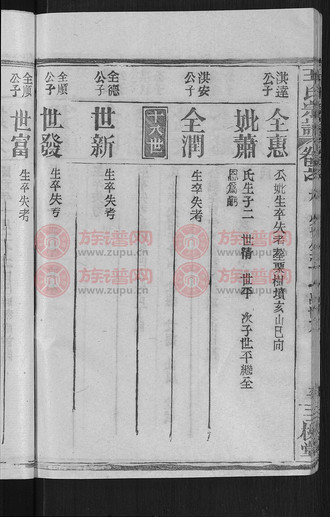 淇達公子
全惠
公妣生卒失考塟栗樹墳亥山巳向
妣蕭
氏生子二 世清 世平 次子世平繼全恩爲嗣
淇安公子
全潤
生卒失考
十八世
全德公子
世新
生卒失考
全順公子
世發
生卒失考
全順公子
世富
生卒失考
族譜网
www.zupu.cn